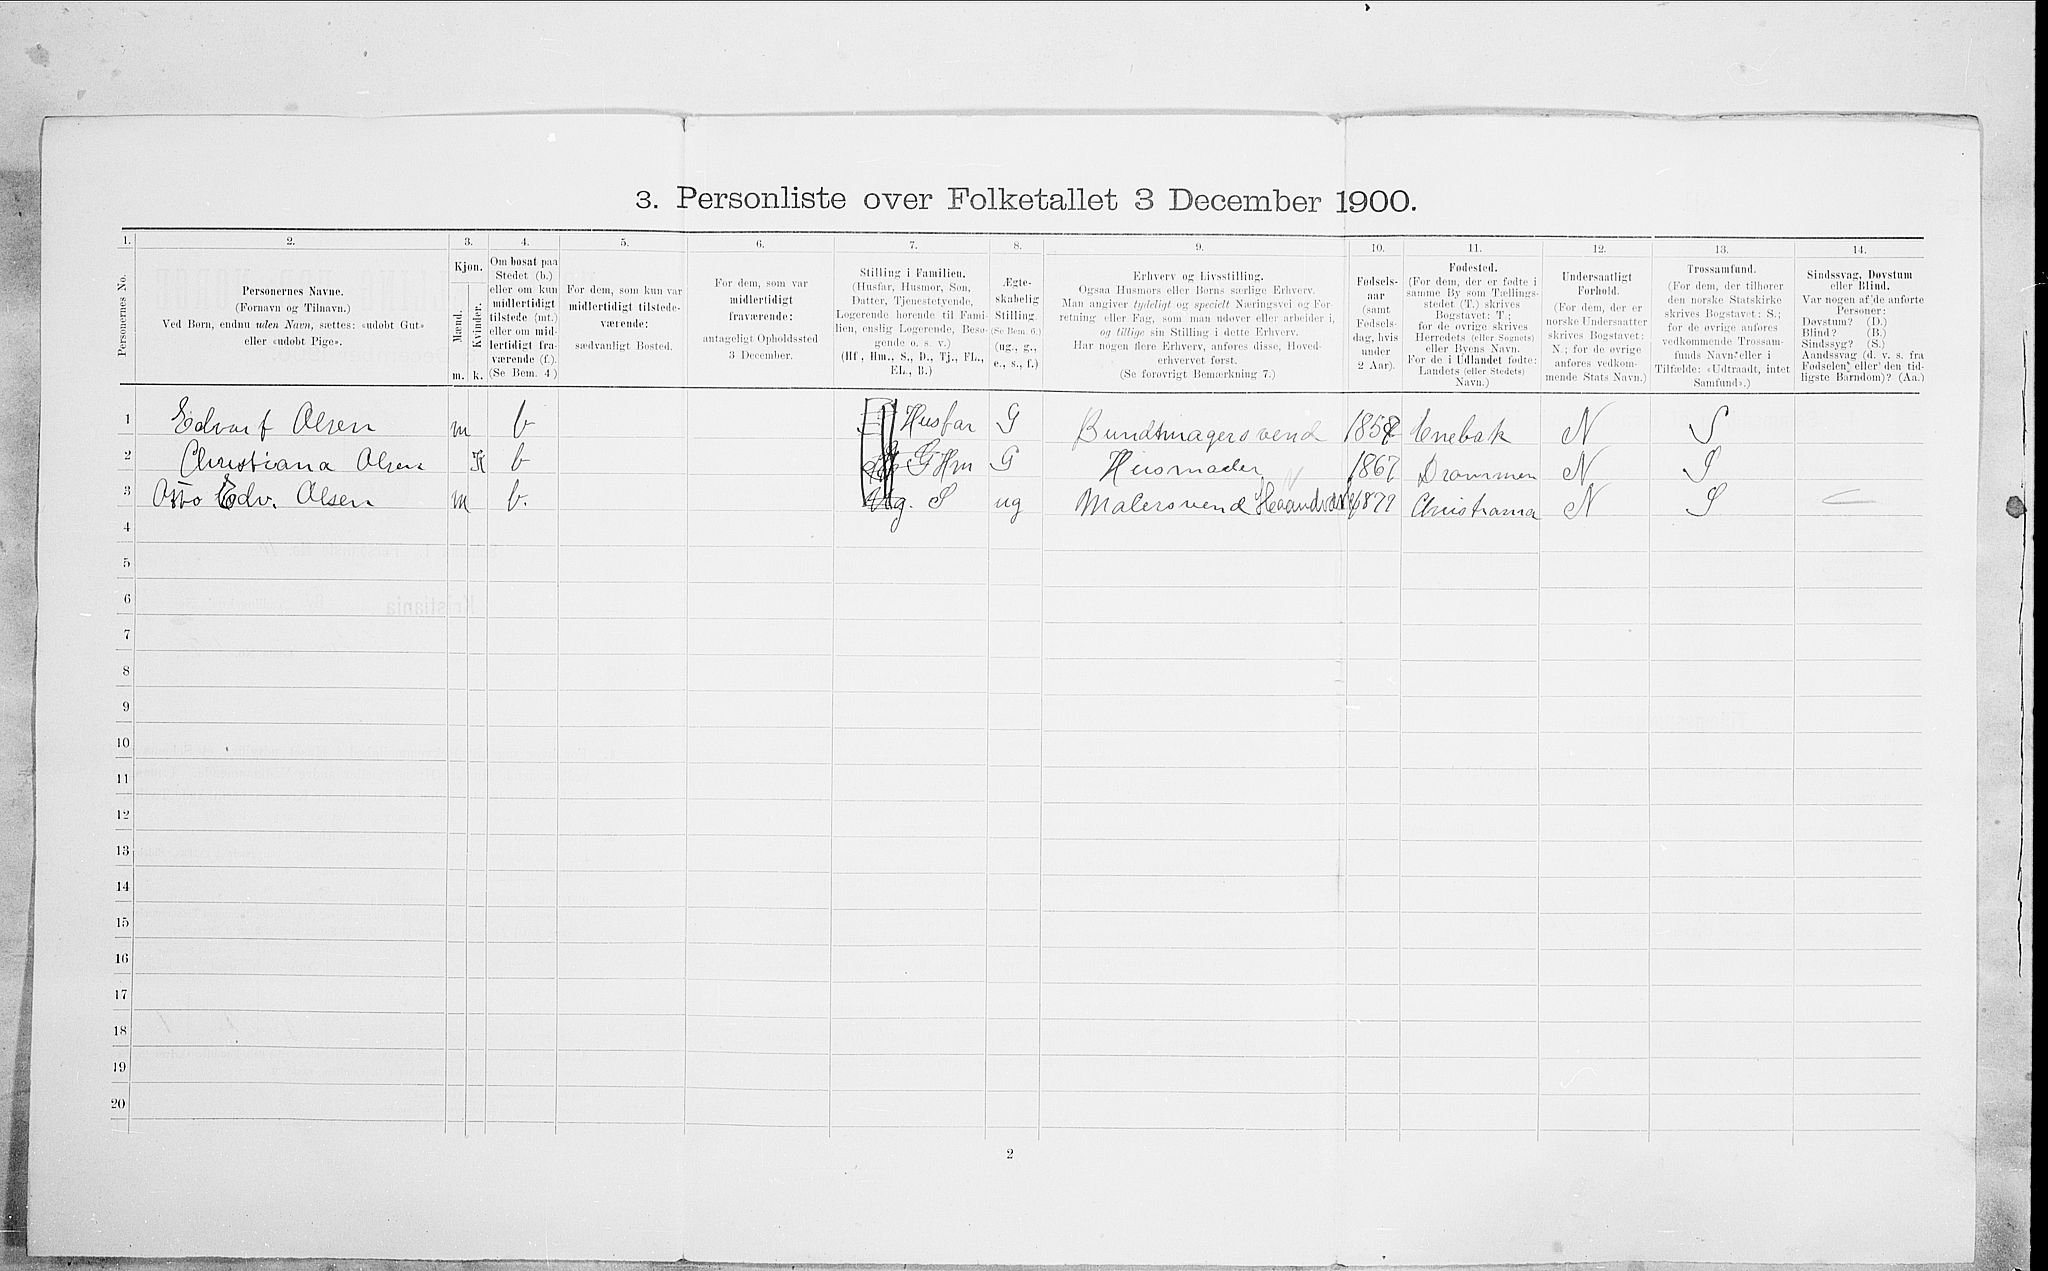 3. Personliste over Folketallet 3 December 1900.
1. 2. 3. 4. 5. 6. 7. 8. 9. 10. 11. 12. 13. 14.
Personernes No.
Personernes Navne.
(Fornavn og Tilnavn.)
Ved Børn, endnu uden Navn, sættes: «udøbt Gut»
eller «udøbt Pige».
Kjøn.
Mænd.
Kvinder.
m. k.
Om bosat paa
Stedet (b.)
eller om kun
midlertidigt
tilstede (mt.)
eller om mid-
lertidigt fra-
værende (f.).
(Se Bem. 4.)
For dem, som kun var
midlertidigt tilstede-
værende:
sædvanligt Bosted.
For dem, som var
midlertidigt
fraværende:
antageligt Opholdssted
3 December.
Stilling i Familien.
(Husfar, Husmor, Søn,
Datter, Tjenestetyende,
Logerende hørende til Fami-
lien, enslig Logerende, Besø-
gende o. s. v.)
(Hf., Hm., S., D., Tj., FL.,
EL., B.)
Ægte-
skabelig
Stilling.
(Se Bem. 6.)
(ug., g.,
e., s., f.)
Erhverv og Livsstilling.
Ogsaa Husmors eller Børns særlige Erhverv.
Man angiver tydeligt og specielt Næringsvei og For-
retning eller Fag, som man udøver eller arbeider i,
og tillige sin Stilling i dette Erhverv.
Har nogen flere Erhverv, anføres disse, Hoved-
erhvervet først.
(Se forøvrigt Bemærkning 7.)
Fødsels-
aar
(samt
Fødsels-
dag, hvis
under
2 Aar).
Fødested.
(For dem, der er fødte i
samme By som Tællings-
stedet (T.) skrives
Bogstavet: T;
for de øvrige skrives
Herredets (eller Sognets)
eller Byens Navn.
For de i Udlandet fødte:
Landets (eller Stedets)
Navn.)
Undersaatligt
Forhold.
(For dem, der er
norske Undersaatter
skrives Bogstavet:
N.; for de øvrige
anføres vedkom-
mende Stats Navn.)
Trossamfund.
(For dem, der tilhører
den norske Statskirke
skrives Bogstavet: S.;
for de øvrige anføres
vedkommende Trossam-
funds Navn eller i
Tilfælde: «Udtraadt, intet
Samfund».)
Sindssvag, Døvstum
eller Blind.
Var nogen af de anførte
Personer:
Døvstum? (D.)
Blind? (B.)
Sindssyg? (S.)
Aandssvag (d. v. s. fra
Fødselen eller den tid-
ligste Barndom)? (Aa.)
1 Edvart Olsen m b Husfar G Bundtmagersvend Enebak N S
2 Christiana Olsen K b Hm G Husmoder 1867 Drammen N S
3 Otto Edv. Olsen m b. S ug Malersvend 1877 Christiania N S
4
5
6
7
8
9
10
11
12
13
14
15
16
17
18
19
20
2